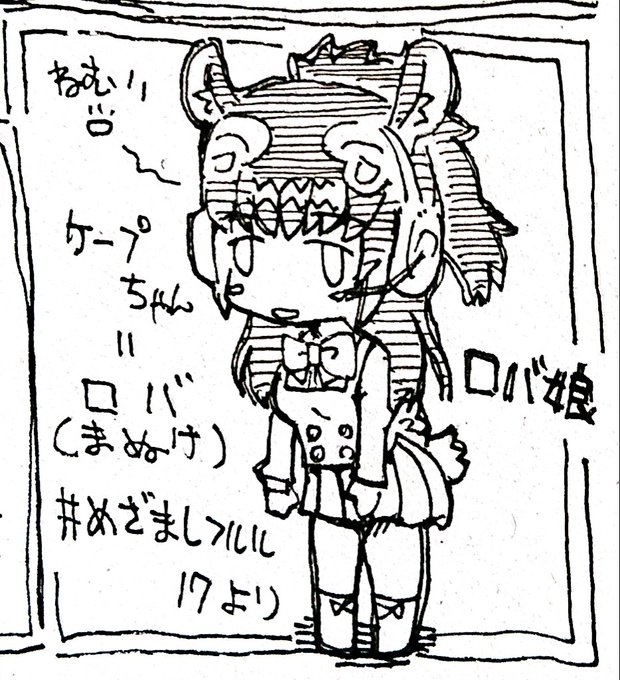 ねむいい
ケープ
ちゃん
=
ロバ
(まぬけ)
#めざましフルル
17より
ロバ娘